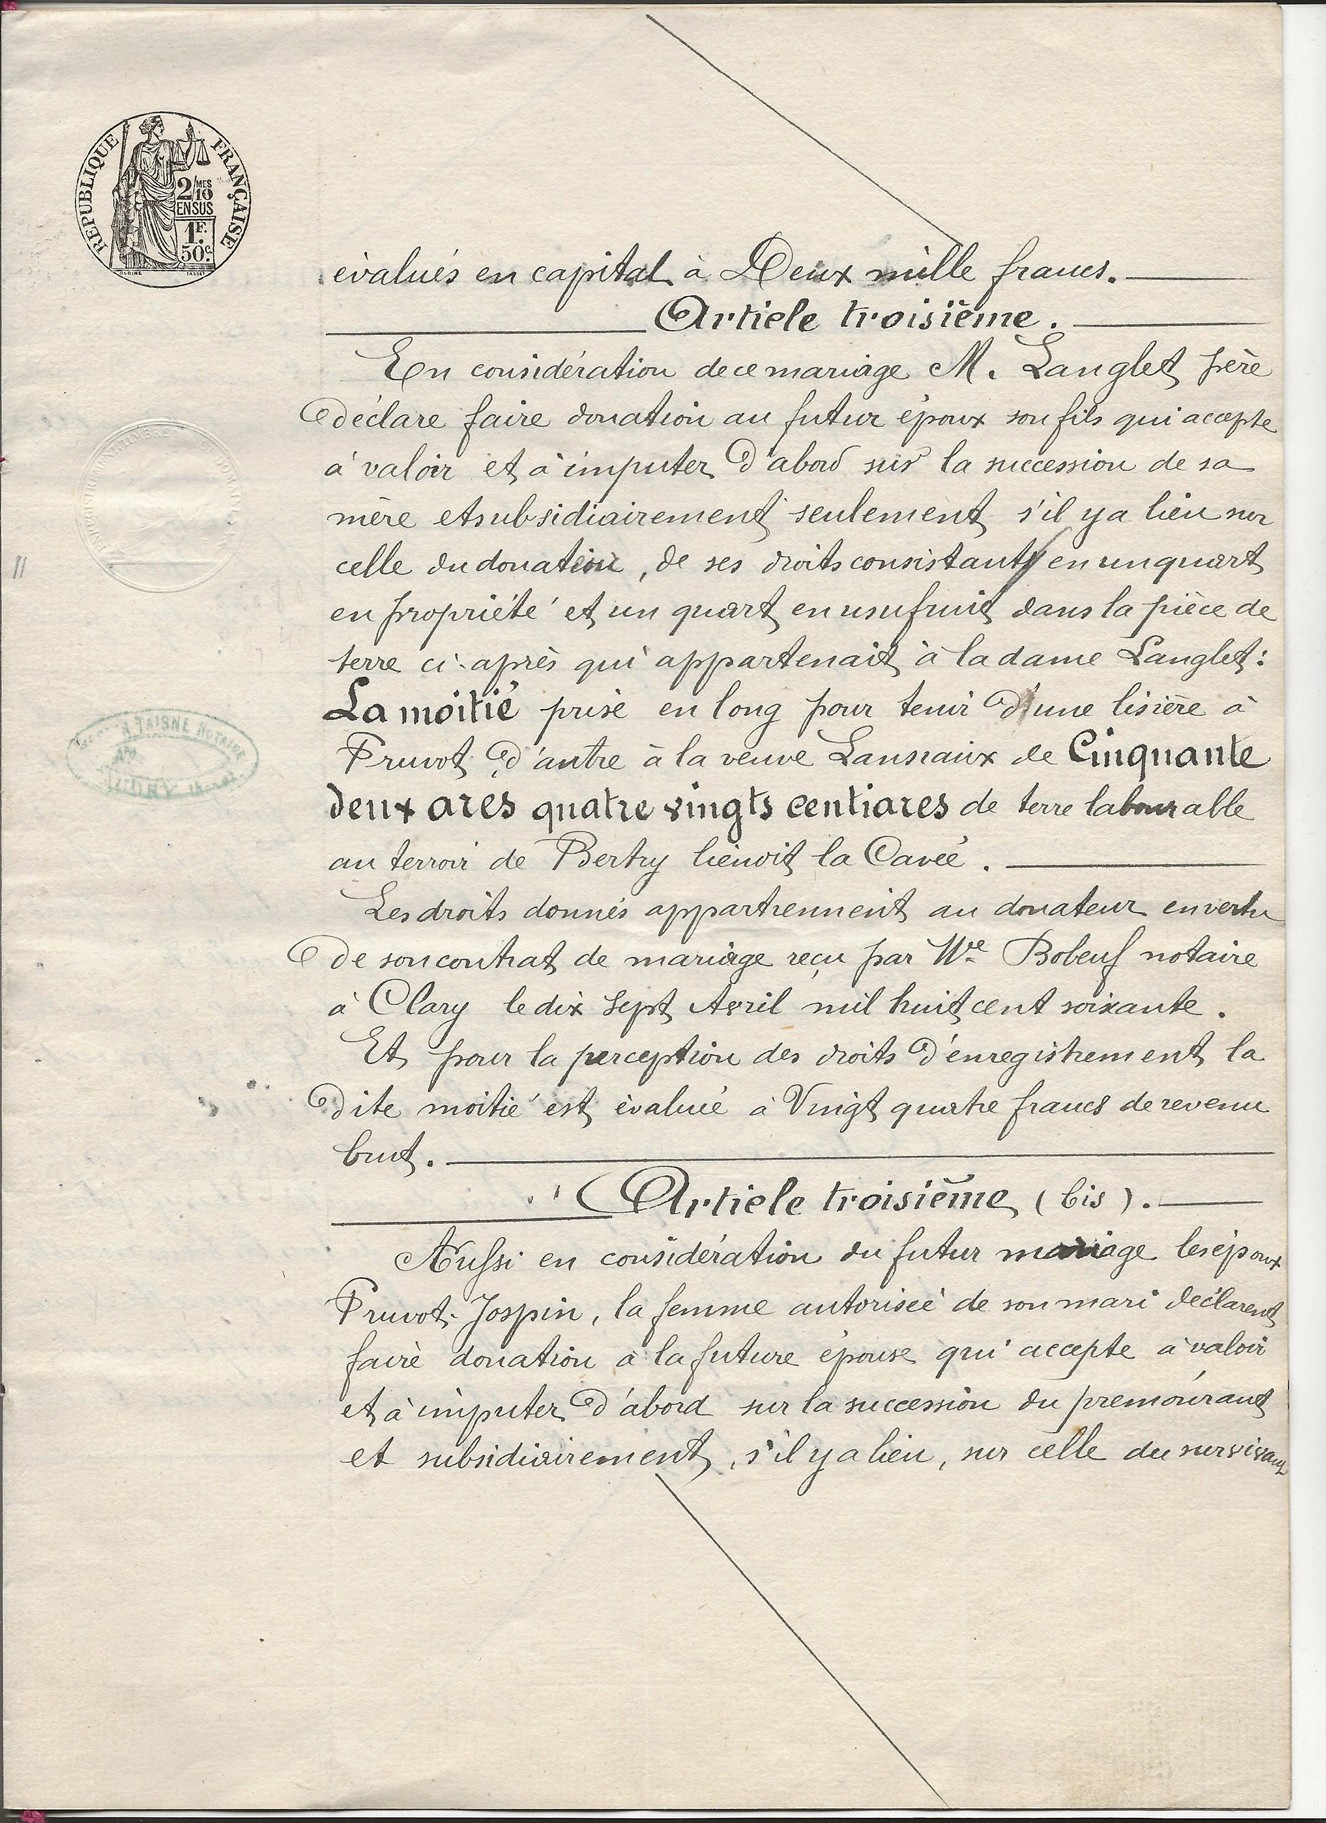 RÉPUBLIQUE FRANÇAISE
2/MES
10
EN SUS
1F.
50c.
évalués en capital à Deux mille francs.
Article troisième.
En considération de ce mariage M. Langlet père
déclare faire donation au futur époux son fils qui accepte
à valoir et à imputer d'abord sur la succession de sa
mère et subsidiairement seulement s'il y a lieu sur
celle du donateur, de ses droits consistant en un quart
en propriété et un quart en usufruit dans la pièce de
terre ci-après qui appartenait à la dame Langlet :
La moitié prise en long pour tenir d'une lisière à
Pruvot, d'autre à la veuve Lansiaux de Cinquante
deux ares quatre vingts centiares de terre labourable
au terroir de Bertry lieudit la Cavée.
Les droits donnés appartiennent au donateur en vertu
de son contrat de mariage reçu par Me Bobeuf notaire
à Clary le dix sept Avril mil huit cent soixante.
Et pour la perception des droits d'enregistrement la
dite moitié est évaluée à Vingt quatre francs de revenu
brut.
Article troisième (bis).
Aussi en considération du futur mariage les époux
Pruvot-Jospin, la femme autorisée de son mari déclarent
faire donation à la future épouse qui accepte à valoir
et à imputer d'abord sur la succession du prémourant
et subsidiairement, s'il y a lieu, sur celle du survivant
TAISNE NOTAIRE